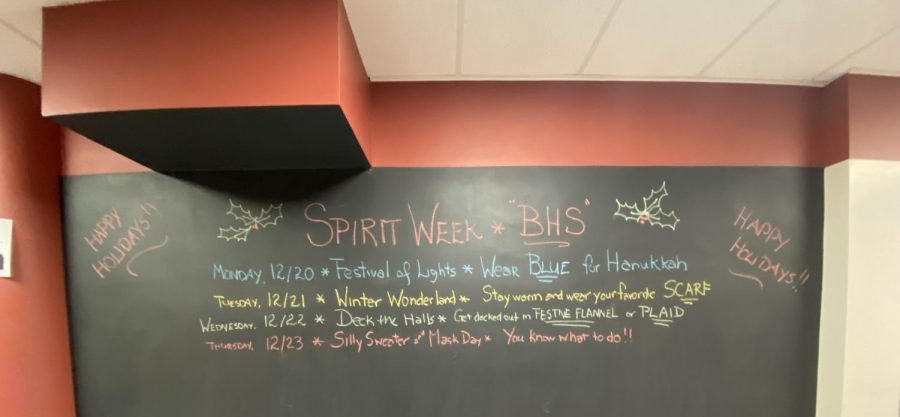 HAPPY
HOLIDAYS!!
SPIRIT WEEK * "BHS"
MONDAY, 12/20 * Festival of Lights * Wear BLUE for Hanukkah
TUESDAY, 12/21 * Winter Wonderland * Stay warm and wear your favorite SCARF
WEDNESDAY, 12/22 * Deck the Halls * Get decked out in FESTIVE FLANNEL or PLAID
THURSDAY, 12/23 * Silly Sweater and Mask Day * You know what to do!!
HAPPY
HOLIDAYS!!